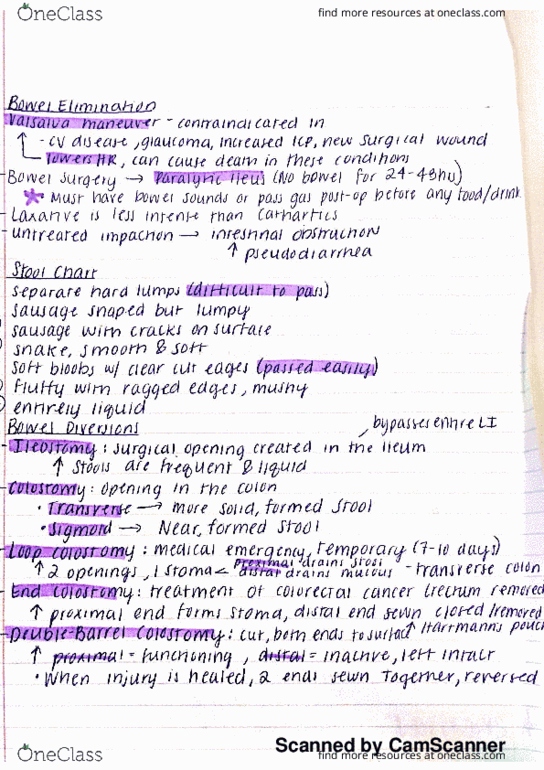 OneClass
find more resources at oneclass.com
Bowel Elimination
Valsalva maneuver - contraindicated in
- CV disease, glaucoma, increased ICP, new surgical wound
lowers HR, can cause death in these conditions
- Bowel surgery → Paralytic Ileus (No bowel for 24-48hu)
* Must have bowel sounds or pass gas post-op before any food/drink
- Laxative is less intense than cathartics
- untreated impaction → intestinal obstruction
↑ pseudodiarrhea
Stool Chart
separate hard lumps (difficult to pass)
sausage shaped but lumpy
sausage with cracks on surface
snake, smooth & soft
soft bloobs w/ clear cut edges (passed easily)
fluffy with ragged edges, mushy
entirely liquid
Bowel Diversions
bypasses entire LI
- Ileostomy: surgical opening created in the ileum
↑ stools are frequent & liquid
- Colostomy: opening in the colon
• Transverse → more solid, formed stool
• Sigmoid → Near, formed stool
- Loop colostomy: medical emergency, temporary (7-10 days)
↑ 2 openings, 1 stoma < proximal drains stool
distal drains mucous - transverse colon
- End Colostomy: treatment of colorectal cancer (rectum removed
↑ proximal end forms stoma, distal end sewn closed/removed
↑ Hartmann's pouch
- Double-Barrel Colostomy: cut, both ends to surface
↑ proximal = functioning, distal = inactive, left intact
• When injury is healed, 2 ends sewn together, reversed
Scanned by CamScanner
OneClass
find more resources at oneclass.com